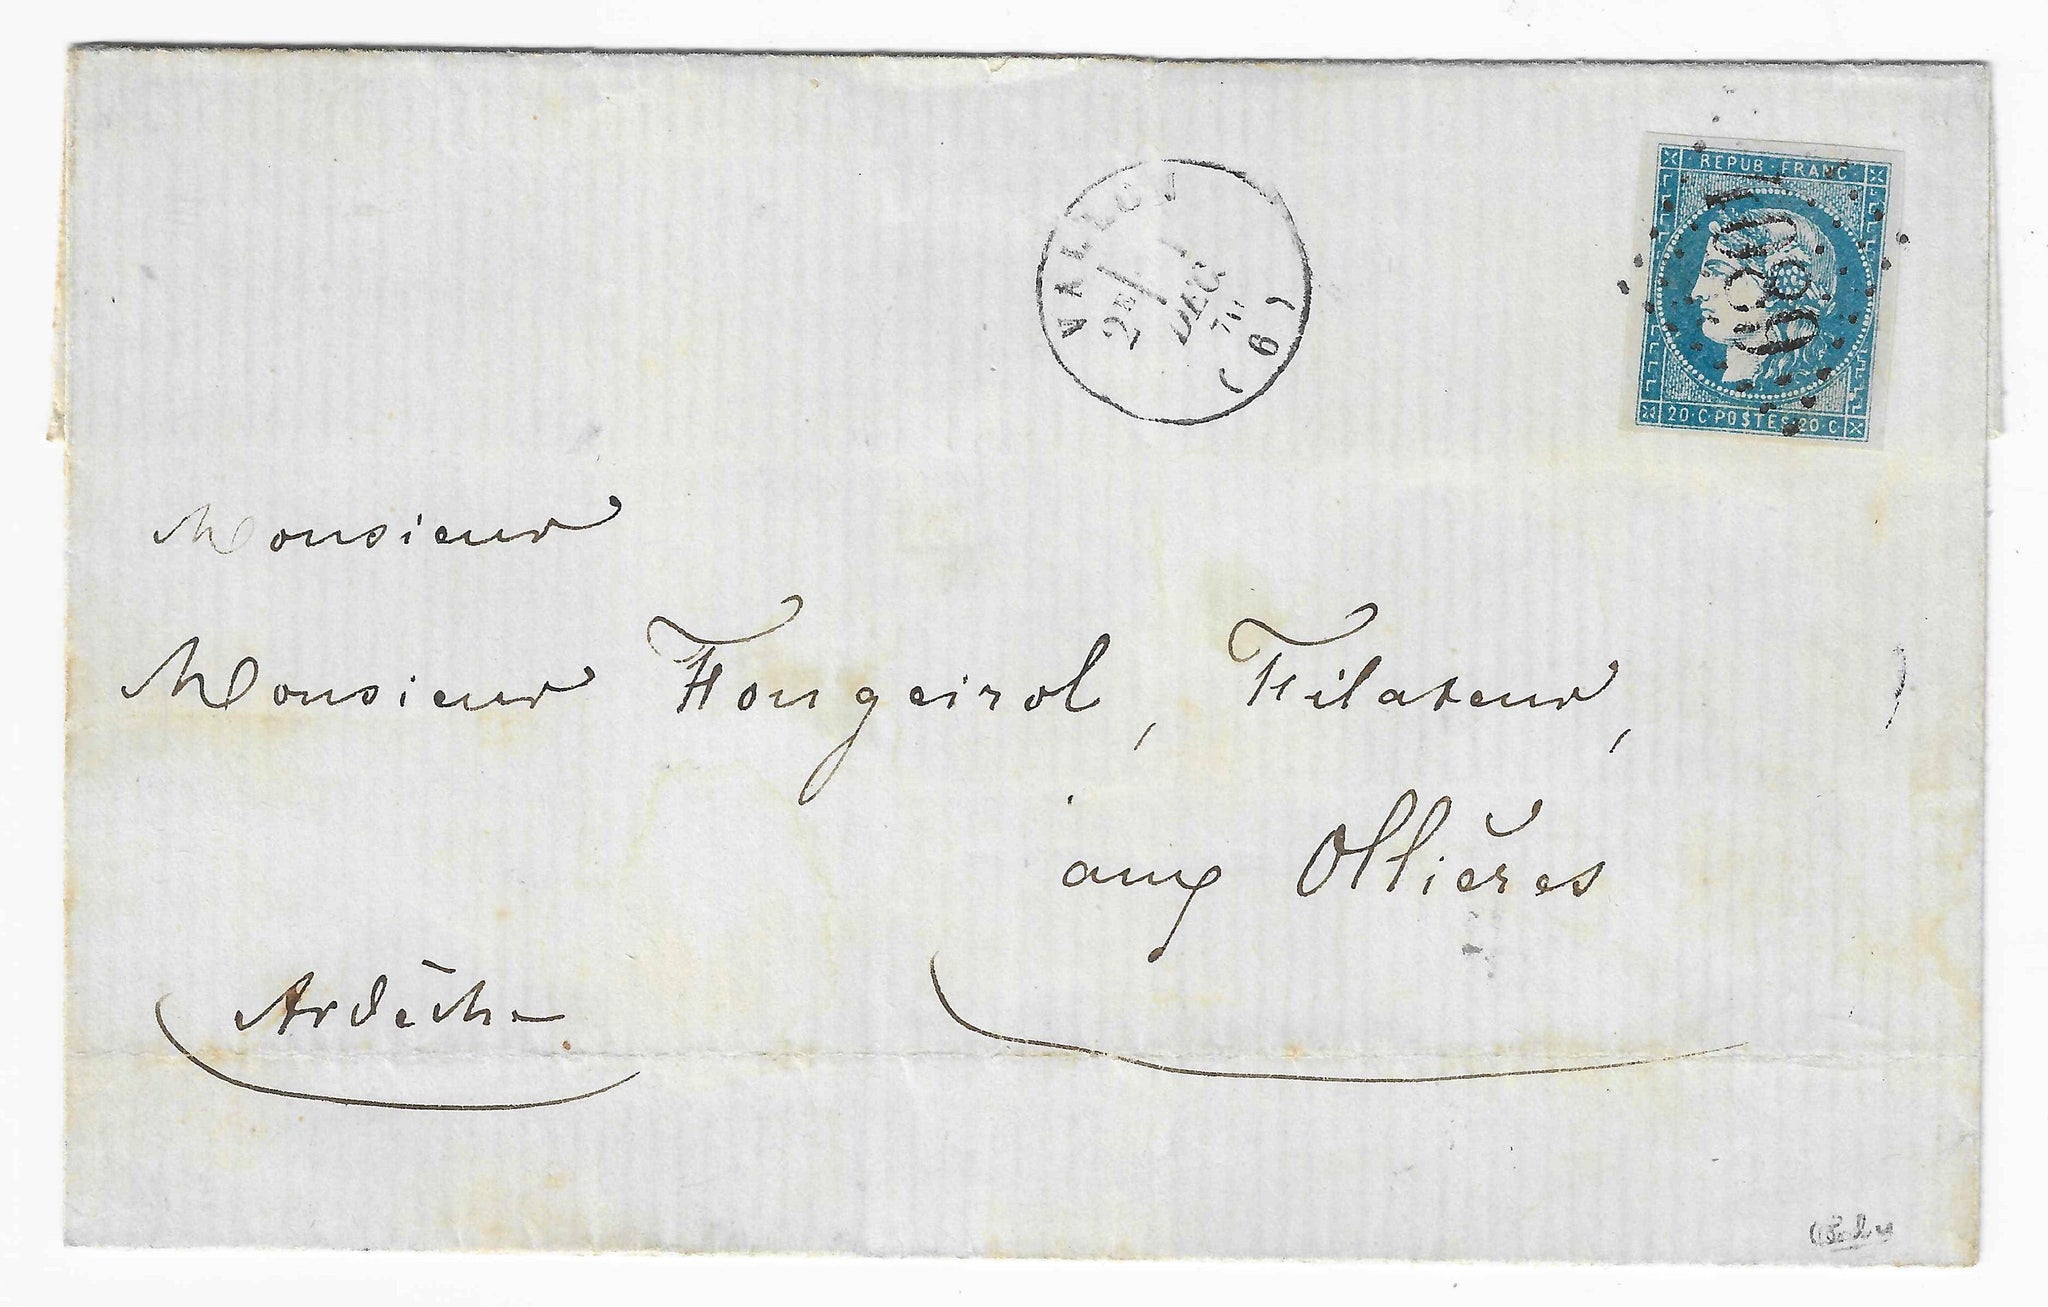 REPUB·FRANC·
20·C·POSTES·20·C·
VALLON
2E/ 1
DEC
70
(6)
Monsieur
Monsieur Fougeirol, Filateur,
aux Ollières
Ardèche